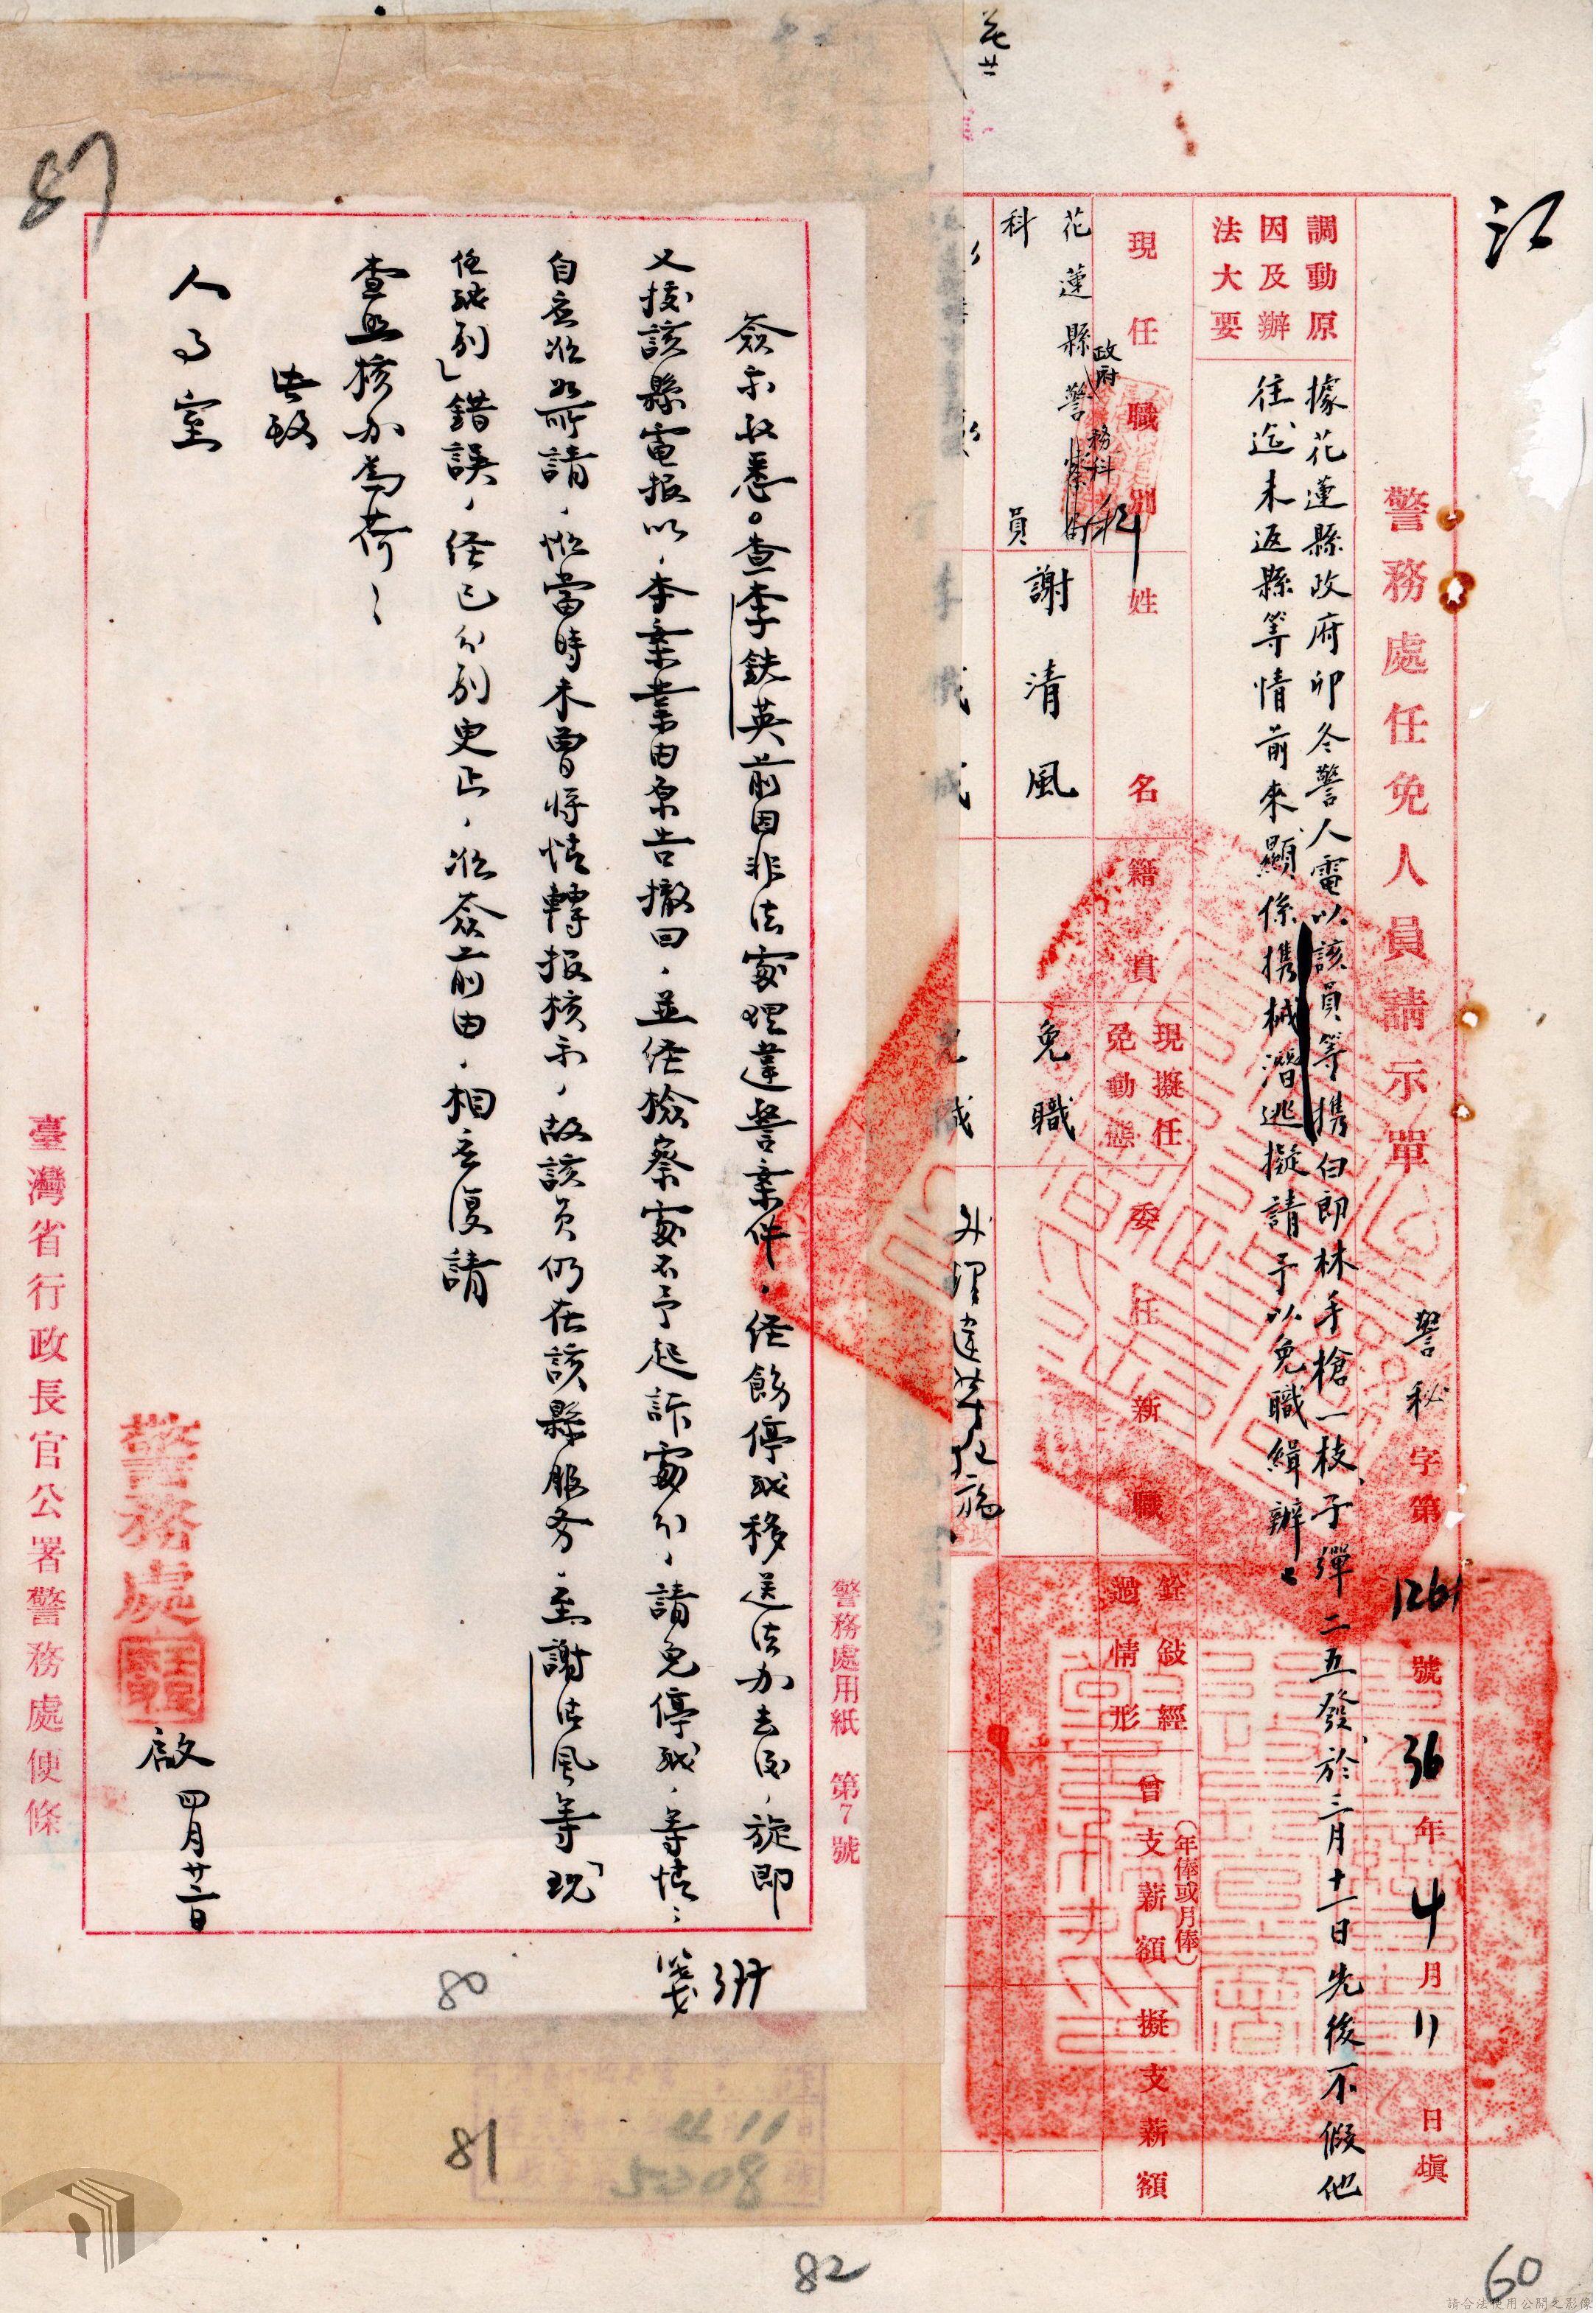 江
警務處任免人員請示單
警秘字第1261號36年4月11日填
調動原
因及辦
法大要
據花蓮縣政府卯冬警人電以該員等携白郎林手槍一枝、子彈二五發、於三月十一日先後不假他
往迄未返縣等情前來顯係携械潛逃擬請予以免職緝辦。
現任職別
姓名
籍貫
現擬任
免動態
委任新職
銓敍經
過情形
曾支薪額
(年俸或月俸)
擬支薪額
花蓮縣
政府
警務科
科員
謝清風
免職
警務處用紙 第7號
簽示敬悉。查李鉄英前因非法處理違警案件,經飭停職移送法办去后,旋即
又據該縣電报以,本案業由原告撤回,並經檢察處不予起訴處分,請免停職,等情;
自应准如所請,惟當時未曾將情轉报核示,故該員仍在該縣服务,至謝清風等「現
任職别」錯誤,經已分别更正,准簽前由,相应復請
查照核办為荷;
此致
人事室
警務處
啟 四月廿二日
臺灣省行政長官公署警務處便條
87
80
81
82
60
請合法使用公開之影像